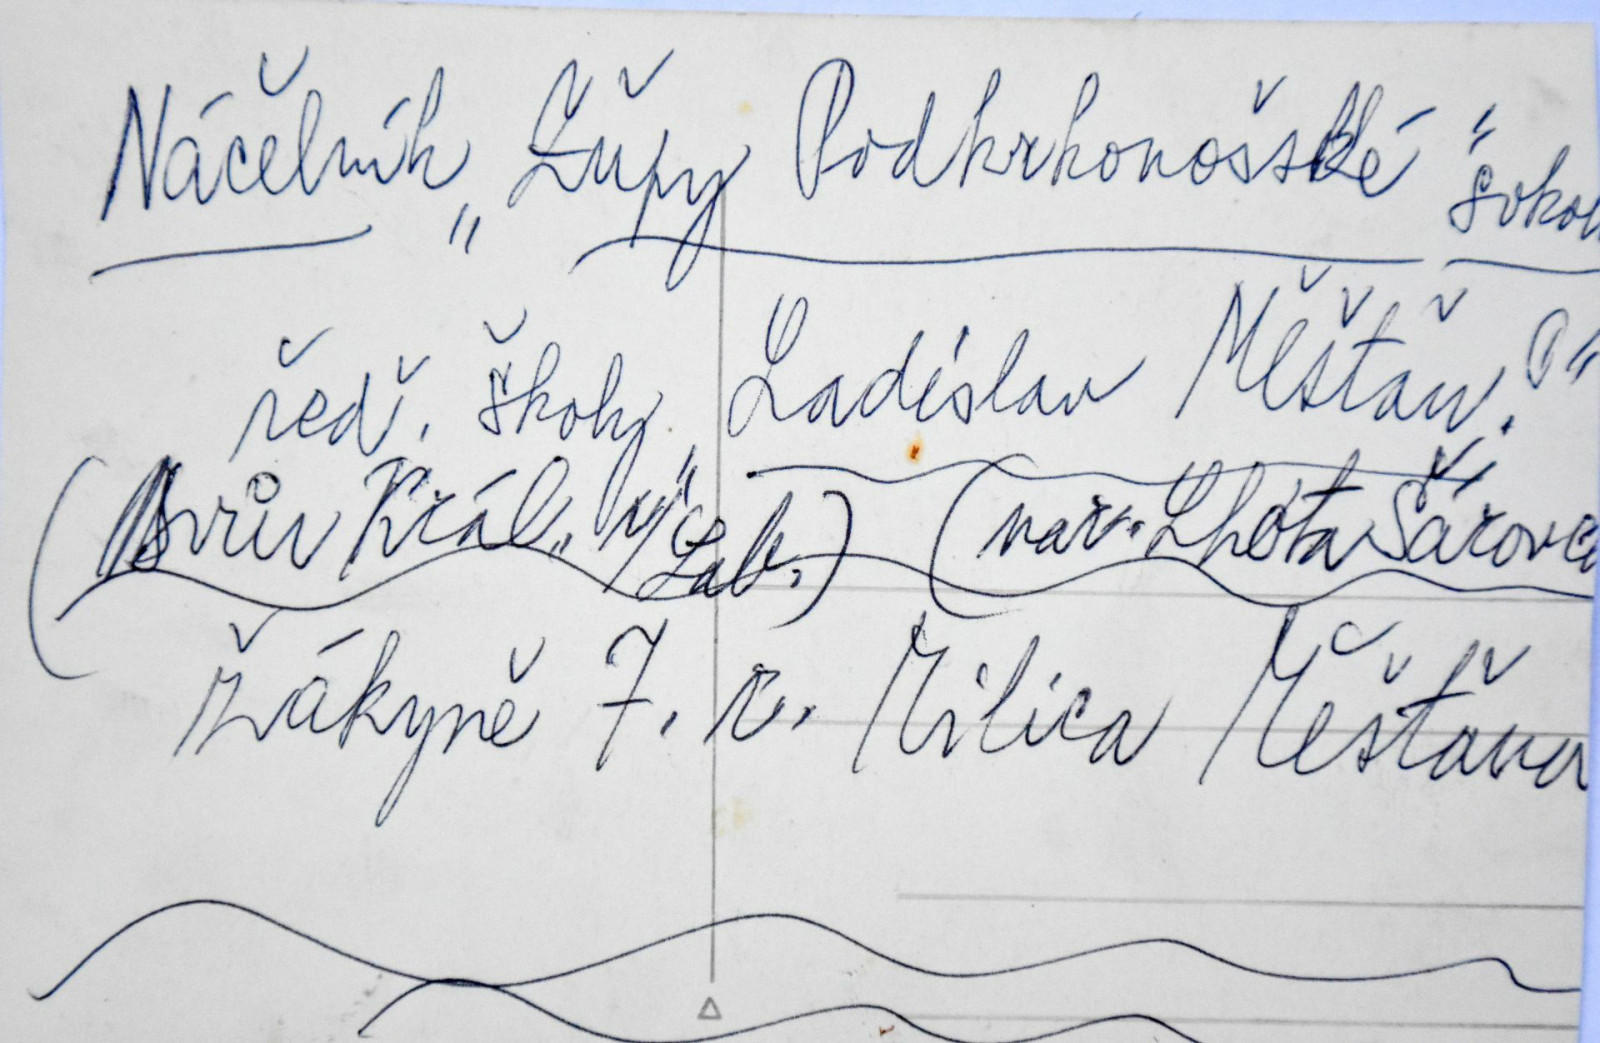 Náčelník „Župy Podkrkonošské“ Sokol
řed. školy Ladislav Měšťan.
(Dvůr Král. n/Lab.) (nar. Lhota Šárovc
žákyně 7. r. Milica Měšťano